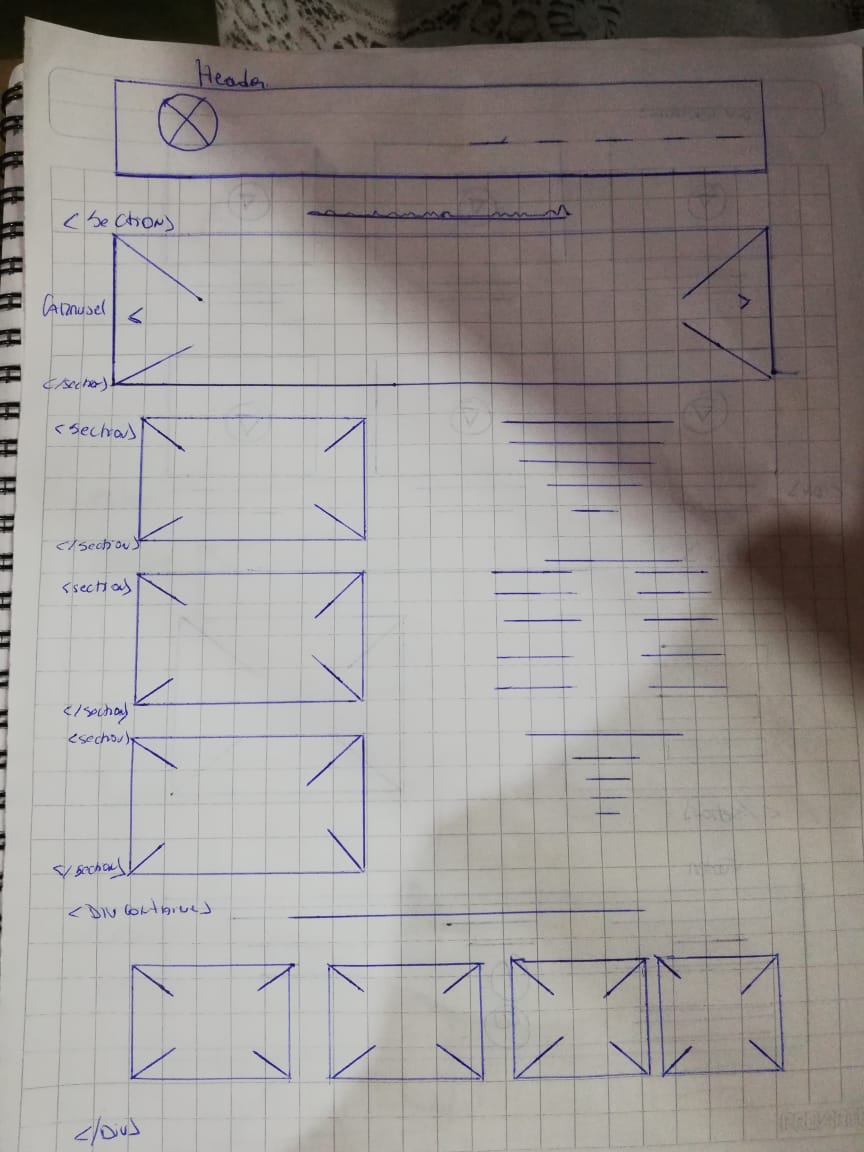 Header
<Section>
Carrusel
<
>
</section>
<section>
</section>
<section>
</section>
<section>
</section>
<Div container>
</Div>